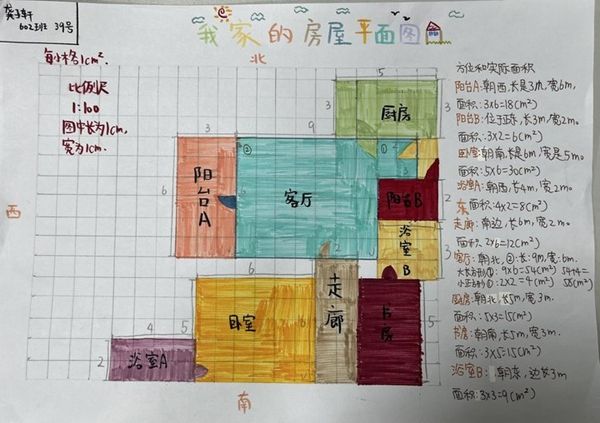 龚子轩
602班 39号
我家的房屋平面图
北
每小格1cm².
比例尺
1:100
图中长为1cm,
宽为1cm.
西
东
南
5
厨房
3
9
3
阳台A
6
②
客厅
6
①
2
阳台B
2
浴室B
3
2
6
卧室
5
走廊
书房
5
4
5
2
浴室A
方位和实际面积
阳台A:朝西,长是3m,宽6m,
面积:3×6=18(m²)
阳台B:位于东,长3m,宽2m。
面积:3×2=6(m²)
卧室:朝南,长是6m,宽是5m。
面积:5×6=30(m²)
浴室A:朝西,长4m,宽2m。
面积:4×2=8(m²)
走廊:南边,长6m,宽2m。
面积:2×6=12(m²)
客厅:朝北,②:长:9m,宽:6m.
大长方形①:9×6=54(m²) 54+4=
小正方形①:2×2=4(m²) 58(m²)
厨房:朝北,长5m,宽3m.
面积:5×3=15(m²)
书房:朝南,长5m,宽3m.
面积:3×5=15(m²)
浴室B:朝东,边长3m
面积:3×3=9(m²)